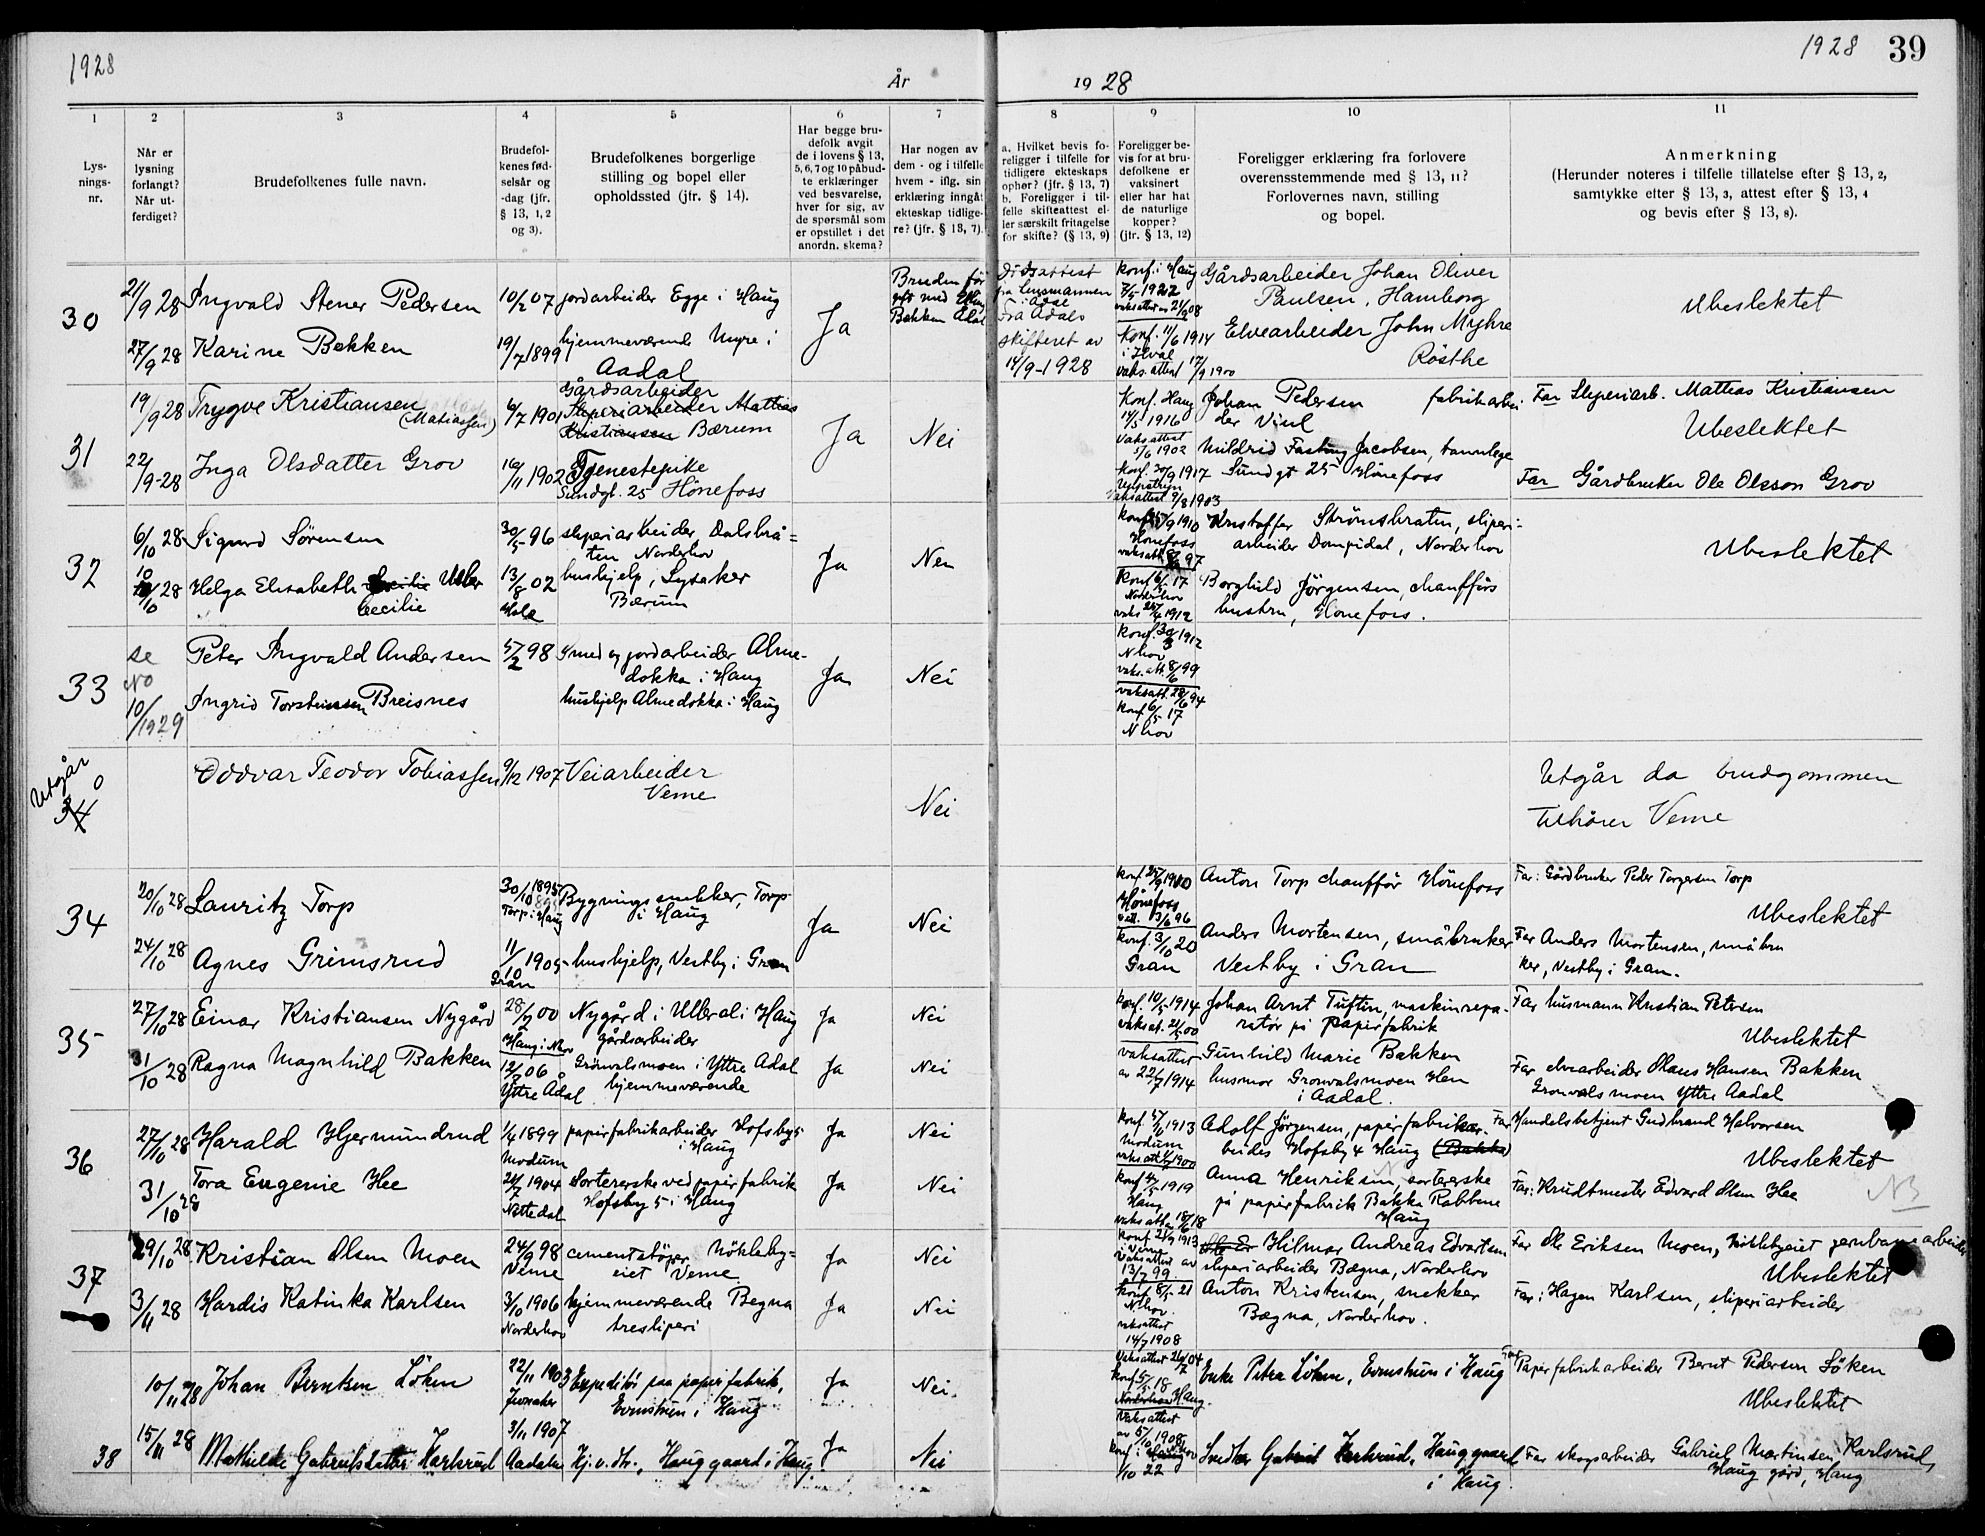 1928
1928 39
År
19 28
1
2
3
4
5
6
7
8
9
10
11
Lys-
nings-
nr.
Når er
lysning
forlangt?
Når ut-
ferdiget?
Brudefolkenes fulle navn.
Brudefol-
kenes fød-
selsår og
-dag (jfr.
§ 13, 1, 2
og 3).
Brudefolkenes borgerlige
stilling og bopel eller
opholdssted (jfr. § 14).
Har begge bru-
defolk avgit
de i lovens § 13,
5, 6, 7 og 10 påbud-
te erklæringer
ved besvarelse,
hver for sig, av
de spørsmål som
er opstillet i det
anordn. skema?
Har nogen av
dem - og i tilfelle
hvem - iflg. sin
erklæring inngåt
ekteskap tidlige-
re? (jfr. § 13, 7).
a. Hvilket bevis fo-
religger i tilfelle for
tidligere ekteskaps
ophør? (jfr. § 13, 7)
b. Foreligger i til-
felle skifteattest el-
ler særskilt fritagelse
for skifte? (§ 13, 9)
Foreligger be-
vis for at bru-
defolkene er
vaksinert
eller har hat
de naturlige
kopper?
(jfr. § 13, 12)
Foreligger erklæring fra forlovere
overensstemmende med § 13, 11?
Forlovernes navn, stilling
og bopel.
Anmerkning
(Herunder noteres i tilfelle tillatelse efter § 13, 2,
samtykke efter § 13, 3, attest efter § 13, 4
og bevis efter § 13, 8).
30
21/9 28 Ingvald Stener Pedersen
10/2 07 jordarbeider Egge i Haug
27/9 28 Karine Bekken
19/7 1899 hjemmeværende Myre i
Aadal
Ja
Bruden før
gift med
Bekken Ådal
Dødsattest
fra Lensmannen
i Ådal
Fra Ådals
skifteret av
14/9-1928
Konf. i Haug
7/5-1922
Konf. 11/6 1914
i Hval
vaks. attest 17/9 1900
Gårdsarbeider Johan Oliver
Paulsen, Hamborg
Elvearbeider John Myhre
Røsthe
Ubeslektet
31
19/9 28 Trygve Kristiansen
(Matiassen)
6/7 1901
Gårdsarbeider
Sliperiarbeider Mattias
Kristiansen Bærum
22/9-28 Inga Olsdatter Grov
16/11 1902 Tjenestepike
Sundgt. 25 Hönefoss
Ja
Nei
Konf. Haug
14/5 1916
Vaksattest
5/6 1902
Konf. 30/9 1917
Vaksattest 9/8 1903
Johan Pedersen fabrikarbei-
der Viul
Mildrid Fasting Jacobsen, tannlege
Sundgt 25 Hönefoss
Far Sliperiarb. Mattias Kristiansen
Ubeslektet
Far Gårdbruker Ole Olsson Grov
32
6/10 28 Sigurd Sörensen
30/5-96 sliperiarbeider, Dalsbrå=
ten Norderhov
10/10 28 Helga Elisabeth Cecilie
Cecilie
13/8 02
Hole
hushjelp, Lysaker
Bærum
Ja
Nei
Hønefoss
Konf. 6/5 17
Norderhov
Kristoffer Strömsbraten, sliperi-
arbeider Dompidal, Norderhov
Borghild Jörgensen, chaufförs
hustru, Hönefoss.
Ubeslektet
33
se
No
10/1929
Peter Ingvald Andersen
5/2 98 Smed og jordarbeider Alme-
dokka i Haug
Ingrid Torsteinsen Breisnes
hushjelp Almedokka i Haug
Ja
Nei
Konf. 30/3 1912
N hov
vaks. att. 8/6 99
vaksatt. 28/6 94
Konf 6/5 17
N hov
Utgår
34
Oddvar Teodor Tobiassen
9/12 1907 Veiarbeider
Veme
Nei
Utgår da brudgommen
tilhörer Veme
34
20/10 28 Lauritz Torp
30/10 1895
Torp i Haug
Bygningssnekker, Torp
i Haug
24/10 28 Agnes Grimsrud
11/10 1905
Gran
hushjelp, Vestby i Gran
Ja
Nei
Hönefoss
Konf. 3/10 20
Gran
Anton Torp chaufför Hönefoss
Anders Mortensen, småbruker
Vestby i Gran
Far: Gårdbruker Peder Torgersen Torp
Ubeslektet
Far Anders Mortensen, småbru
ker, Vestby i Gran.
35
27/10 28 Einar Kristiansen Nygård
28/2 00 Nygård i Ulleral i Haug
gårdsarbeider
31/10 28 Ragna Magnhild Bakken
Ytre Ådal
Grönvalsmoen i Yttre Adal
hjemmeværende
Ja
Nei
Ja
Nei
Konf. 10/5-1914
vaksattest
av 22/7 1914
Johan Arnt Tuften, maskinrepa-
ratör på papirfabrik
Gunhild Marie Bakken
husmor Gronvalsmoen Hen
i Aadal.
Far husmann Kristian Petersen
Ubeslektet
Far elvearbeider Olaus Hansen Bakken
Gronvalsmoen Yttre Aadal
36
27/10 28 Harald Hjermundrud
1/4 1899
Modum
papirfabrikarbeider Hofsby 5
i Haug
31/10 28
Tora Eugenie Hee
24/7 1904
Nittedal
Sortererske ved papirfabrik
Hofsby 5 i Haug
Ja
Nei
Ja
Nei
Modum
Haug
Adolf Jörgensen, papirfabrikar-
beider Hofsby 4 Haug
Anna Henriksen, sortererske
på papirfabrik Bakka Rabbene
Haug
Far Handelsbetjent Gudbrand Halvorsen
Ubeslektet
Far: Krudtmester Edvard Olsen Hee
NB
37
29/10 28 Kristian Olsen Moen
24/9 98
Veme
cementstöper, Nökleby=
eiet Veme
3/11 28 Hardis Katinka Karlsen
3/10 1906
Norderhov
hjemmeværende Begna
tresliperi
Ja
Nei
Ja
Nei
Veme
Vaksattest av
13/7 99
N hov.
vaksattest
14/7 1908
Hilmar Andreas Edvartsen
sliperiarbeider Bægna, Norderhov
Anton Kristensen, snekker
Bægna, Norderhov.
Far Ole Eriksen Moen, Nöklebyeiet jernbanearbeider
Ubeslektet
Far: Hagen Karlsen, sliperiarbeider
38
10/11 28 Johan Berntsen Löken
22/11 1903
Jevnaker
Expeditör paa papirfabrik,
i Haug
15/11 28
Mathilde Gabrielsdatter Karlsrud
3/11 1907
Aadalen
Hj. v. dtr., Haug gaard i Haug
Ja
Nei.
Ja
Nei
Vaksattest
av 5/10 1908
Enke Petra Löken, i Haug
Snedker Gabriel Karlsrud, Haug gaard
i Haug.
Far Papirfabrikarbeider Bernt Pedersen Löken
Ubeslektet
Far skogsarbeider Gabriel Martinsen Karlsrud,
Haug gård, Haug